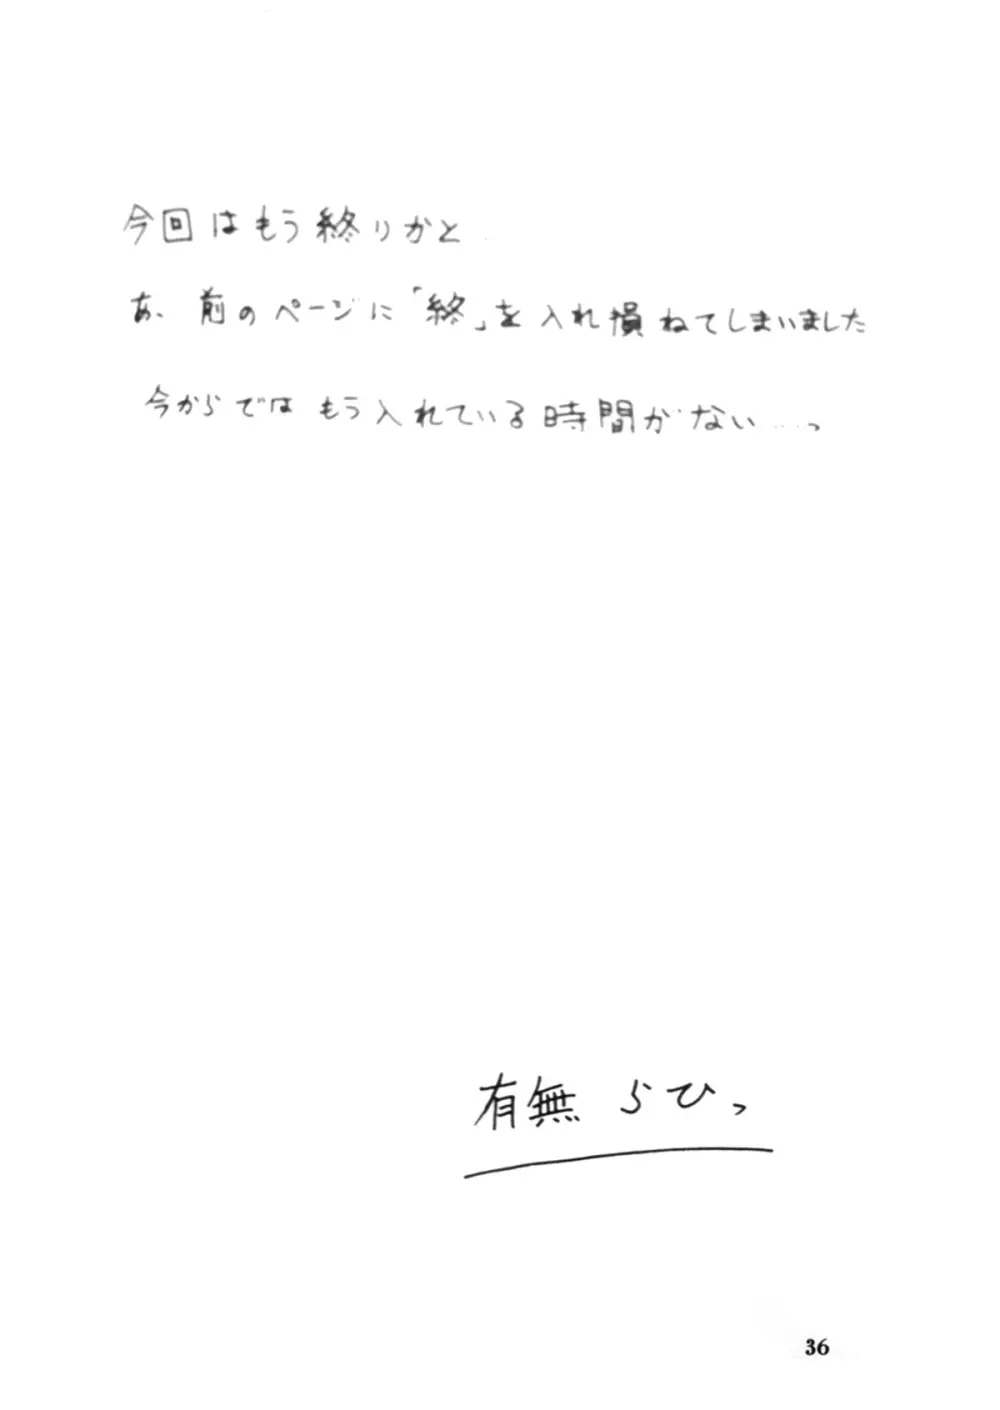 今回はもう終りかと…
あ、前のページに「終」を入れ損ねてしまいました
今からではもう入れている時間がない……っ
有無らひっ
36